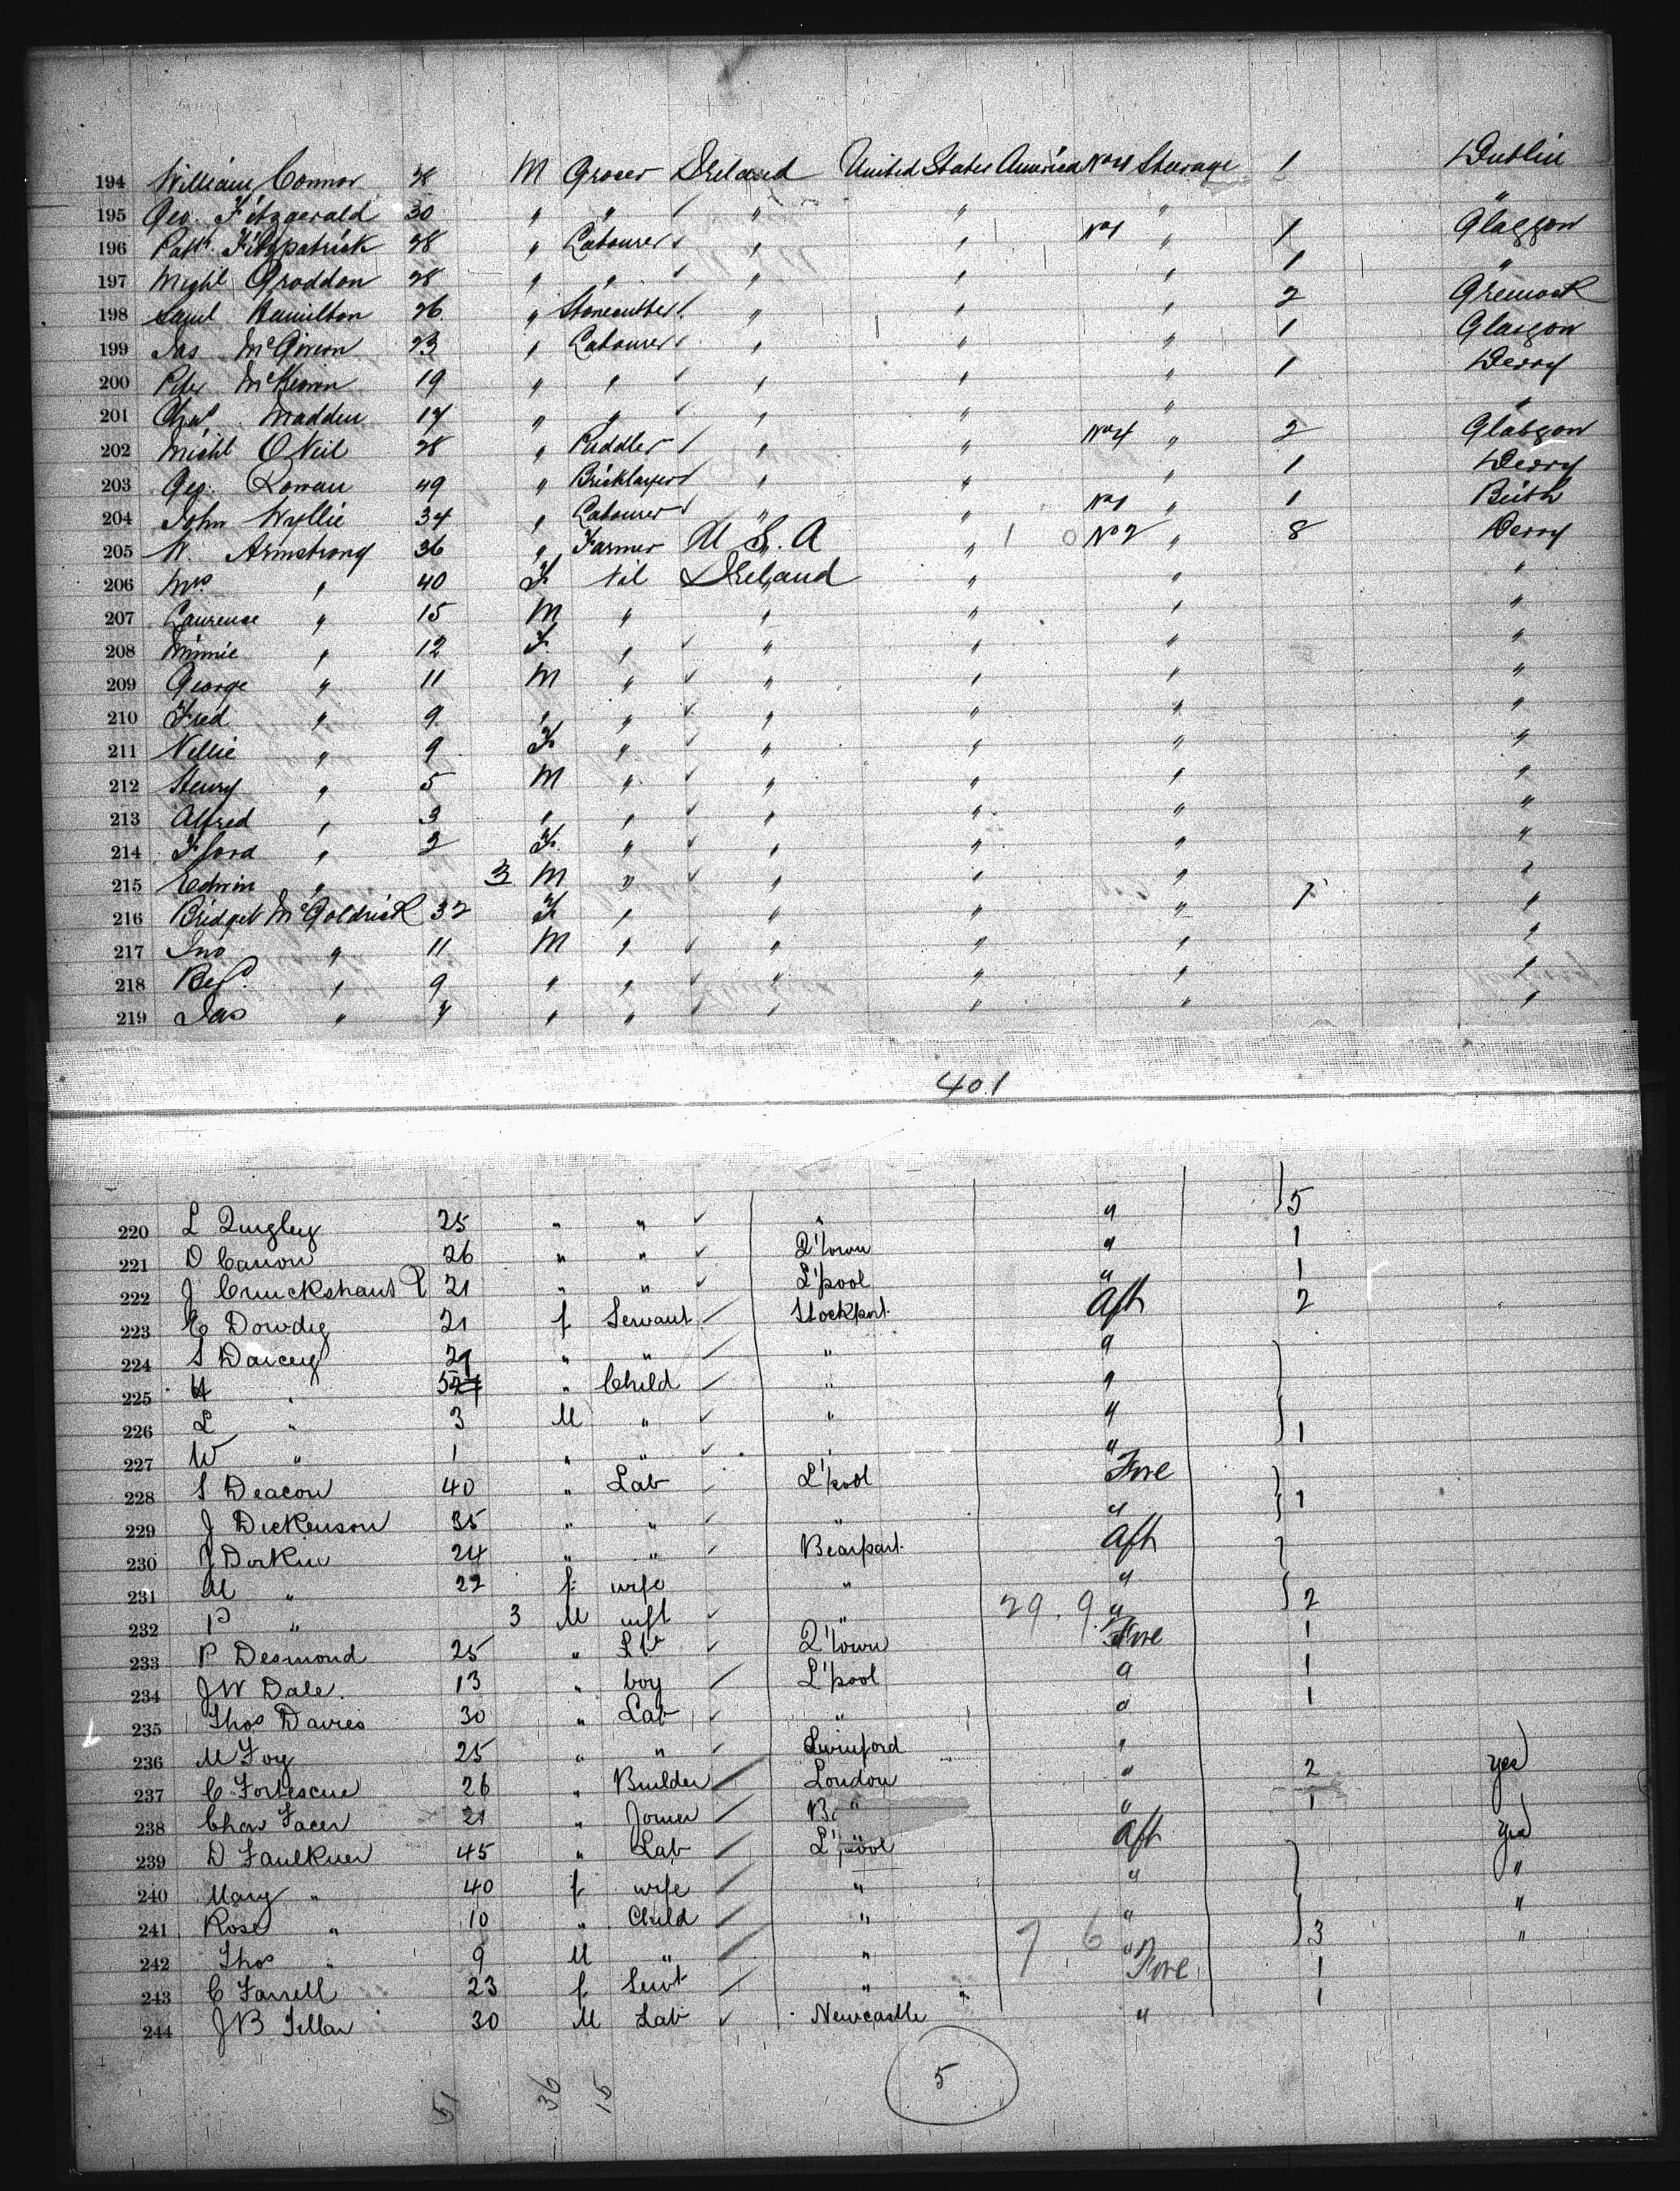 194 William Connor 28 M Grocer Ireland United States America No 4 Steerage 1 Dublin
195 Geo. Fitzgerald 30 " " " " " "
196 Patk. Fitzpatrick 28 " Labourer " " No 1 " 1 Glasgow
197 Michl Groddon 28 " " " " " 1 "
198 Saml Hamilton 26 " Stonecutter " " " 2 Greenock
199 Jas McGivern 23 " Labourer " " " 1 Glasgow
200 Peter McKeown 19 " " " " " 1 Derry
201 Chas Madden 17 " " " " " "
202 Michl O Neil 28 " Puddler " " No 4 " 2 Glasgow
203 Geo. Rowan 49 " Bricklayer " " " 1 Derry
204 John Wyllie 34 " Labourer " " No 1 " 1 Beith
205 W. Armstrong 36 " Farmer U S. A " 1 0 No 2 " 8 Derry
206 Mrs " 40 F Nil Ireland " " "
207 Laurence " 15 M " " " " "
208 Minnie " 12 F. " " " " "
209 George " 11 M " " " " "
210 Fred " 9 " " " " " "
211 Nellie " 9 F " " " " "
212 Henry " 5 M " " " " "
213 Alfred " 3 " " " " " "
214 Flora " 2 F. " " " " "
215 Edwin " 3 M " " " " "
216 Bridget McGoldrick 32 F " " " " 1 "
217 Jno " 11 M " " " " "
218 " 9 " " " " " "
219 Jas " 7 " " " " " "
401
220 L Quigley 25 " " " " 5
221 D Canon 26 " " Q'town " 1
222 J Cruickshank 21 " " L'pool " 1
223 E Dowdig 21 f Servant Stockport Aft 2
224 S Darcey 29 " " " "
225 " 5 " Child " "
226 L " 3 M " " "
227 W " 1 " " " " 1
228 S Deacon 40 " Lab L'pool Fore
229 J Dickenson 35 " " " " 1
230 J Dorkin 24 " " Bearpark Aft
231 M " 22 f wife " "
232 P " 3 M inft " 29. 9. " 2
233 P Desmond 25 " Lb Q'town Fore 1
234 J W Dale 13 " boy L'pool " 1
235 Thos Davies 30 " Lab " " 1
236 M Foy 25 " " Swinford "
237 C Fortescue 26 " Builder London " 2 yes
238 Chas Facer 21 " Joiner " " 1
239 D Faulkner 45 " Lab L'pool Aft yes
240 Mary " 40 f wife " " "
241 Rose " 10 " Child " " "
242 Thos " 9 M " " 7 6 " 3 "
243 C Farrell 23 f Servt " Fore 1
244 J B Fillan 30 M Lab Newcastle " 1
51 36 15 5